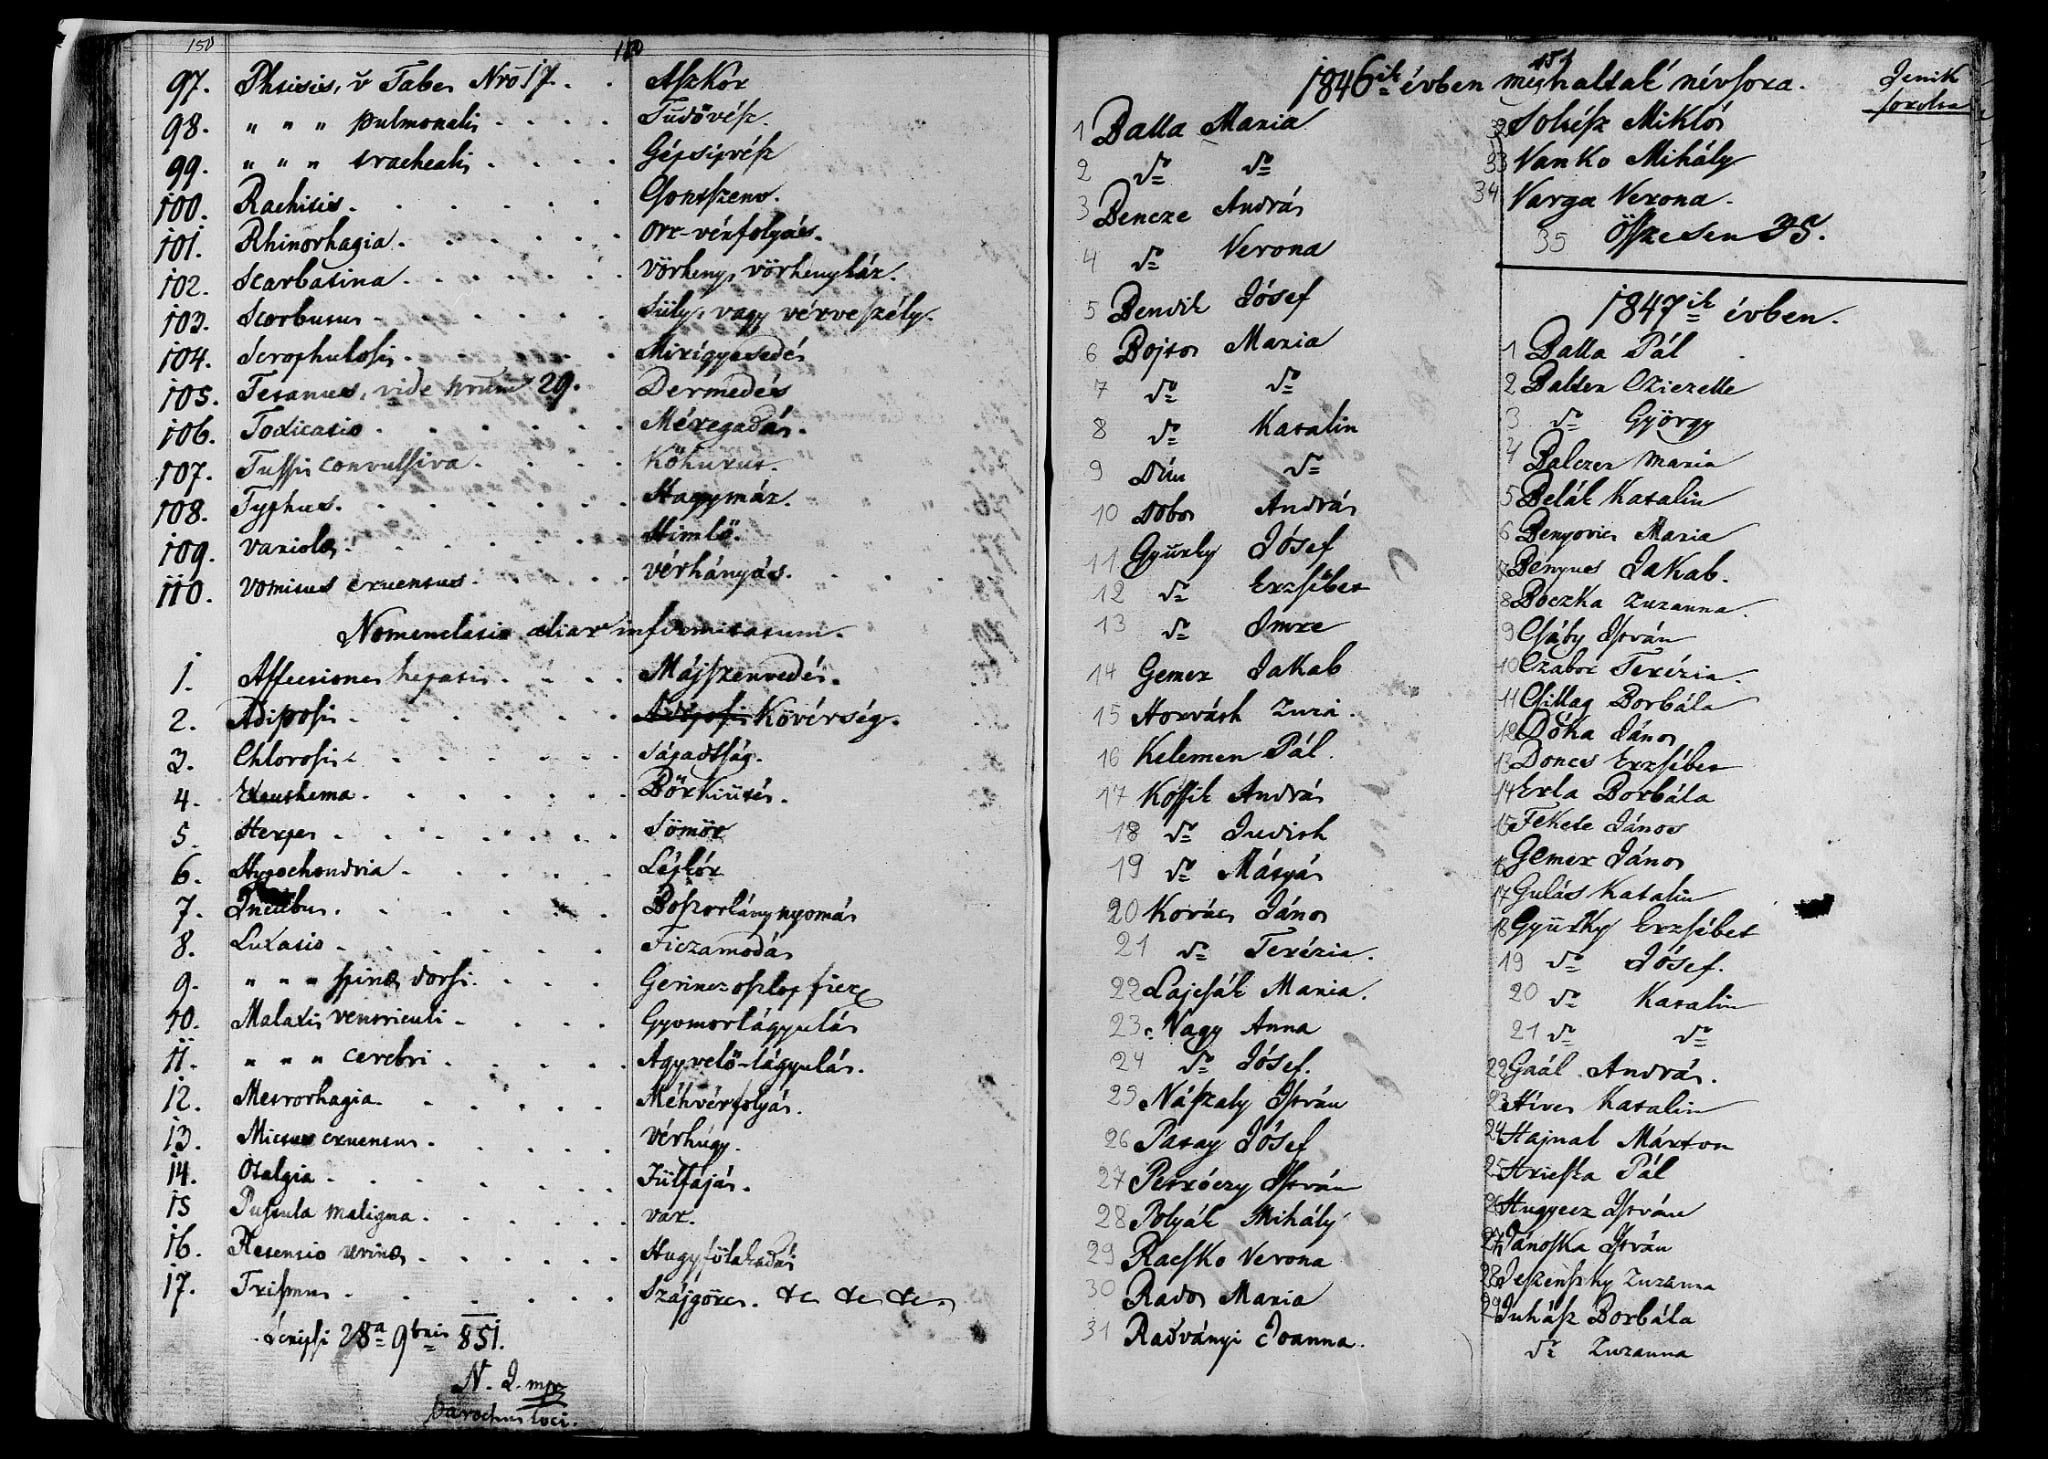 150
110
97. Phtisis, v Tabes Nrō 17. Aszkór
98. " " " pulmonalis Tüdővész.
99. " " " tracheatis Gégsipvész
100. Rachitis. Csontszenv.
101. Rhinorhagia. Orr-vérfolyás.
102. Scarlatina. Vörheny, vörhenyláz.
103. Scorbutus Süly, vagy vérveszély.
104. Scrophulosis. Mirigyesedés
105. Tetanus, vide nrum 29. Dermedés
106. Toxicatio Méregadás.
107. Tussis convulsiva. Köhurut.
108. Typhus. Hagymáz.
109. Variolæ. Himlő.
110. Vomitus cruentus. Vérhányás.
Nomenclatio aliar infirmitatum.
1. Affectiones hepatis. Májszenvedés.
2. Adiposis Kövérség.
3. Chlorosis Sápadtság.
4. Exanthema Bőrkiütés.
5. Herpes Sömör
6. Hypochondria. Lépkór
7. Incubus. Boszorkány nyomás
8. Luxatio Ficzamodás
9. " " " spinæ dorsi. Gerincz oszlop ficz
10. Malaxis ventriculi Gyomorlágyulás
11. " " " cerebri Agyvelő-lágyulás.
12. Metrorhagia. Méhvérfolyás.
13. Mictus cruentus. Vérhúgy.
14. Otalgia Fülfájás.
15 Pustula maligna. Var.
16. Retentio urinæ Hugyfölakadás
17. Trismus Szájgörcs. &c &c &c.
Scripsi 28a 9bris 851.
N. J. mpr
Parochus loci.
151
1846ik évben meghaltak névsora.
1 Balla Maria
2 do do
3 Bencze András
4 do Verona
5 Bendik Jósef
6 Bojtos Maria
7 do do
8 do Katalin
9 Dún do
10 Dobos András
11 Gyürky Jósef
12 do Erzsébet
13 do Imre
14 Gemer Jakab
15 Horváth Zuzi.
16 Kelemen Pál.
17 Kossik András
18 do Judith
19 do Mátyás
20 Kovács János
21 do Terézia.
22 Lajcsák Maria.
23 Nagy Anna
24 do Jósef.
25 Nászaly István
26 Patay Jósef
27 Petróczy István
28 Polyák Mihály
29 Racsko Verona
30 Rados Maria
31 Radványi Joanna.
32 Soltész Miklós
33 Vanko Mihály
34 Varga Verona.
35 Öszesen 35.
1847ik évben.
1 Balla Pál
2 Balter
3 do György
4 Balczer Maria
5 Belák Katalin
6 Benyovics Maria
7 Benyues Jakab.
8 Boczka Zuzanna
9 Csáby István
10 Czabor Terézia.
11 Csillag Borbála
12 Dóka János
13 Doncs Erzsébet
14 Erla Borbála
15 Fekete János
16 Gemer János
17 Gulács Katalin
18 Gyürky Erzsébet
19 do Jósef.
20 do Katalin
21 do do
22 Gaál András.
23 Híves Katalin
24 Hajnal Márton
25 Hricska Pál
26 Hugyecz István
27 Jánoska István
28 Jeszenszky Zuzanna
29 Juhász Borbála
do Zuzanna